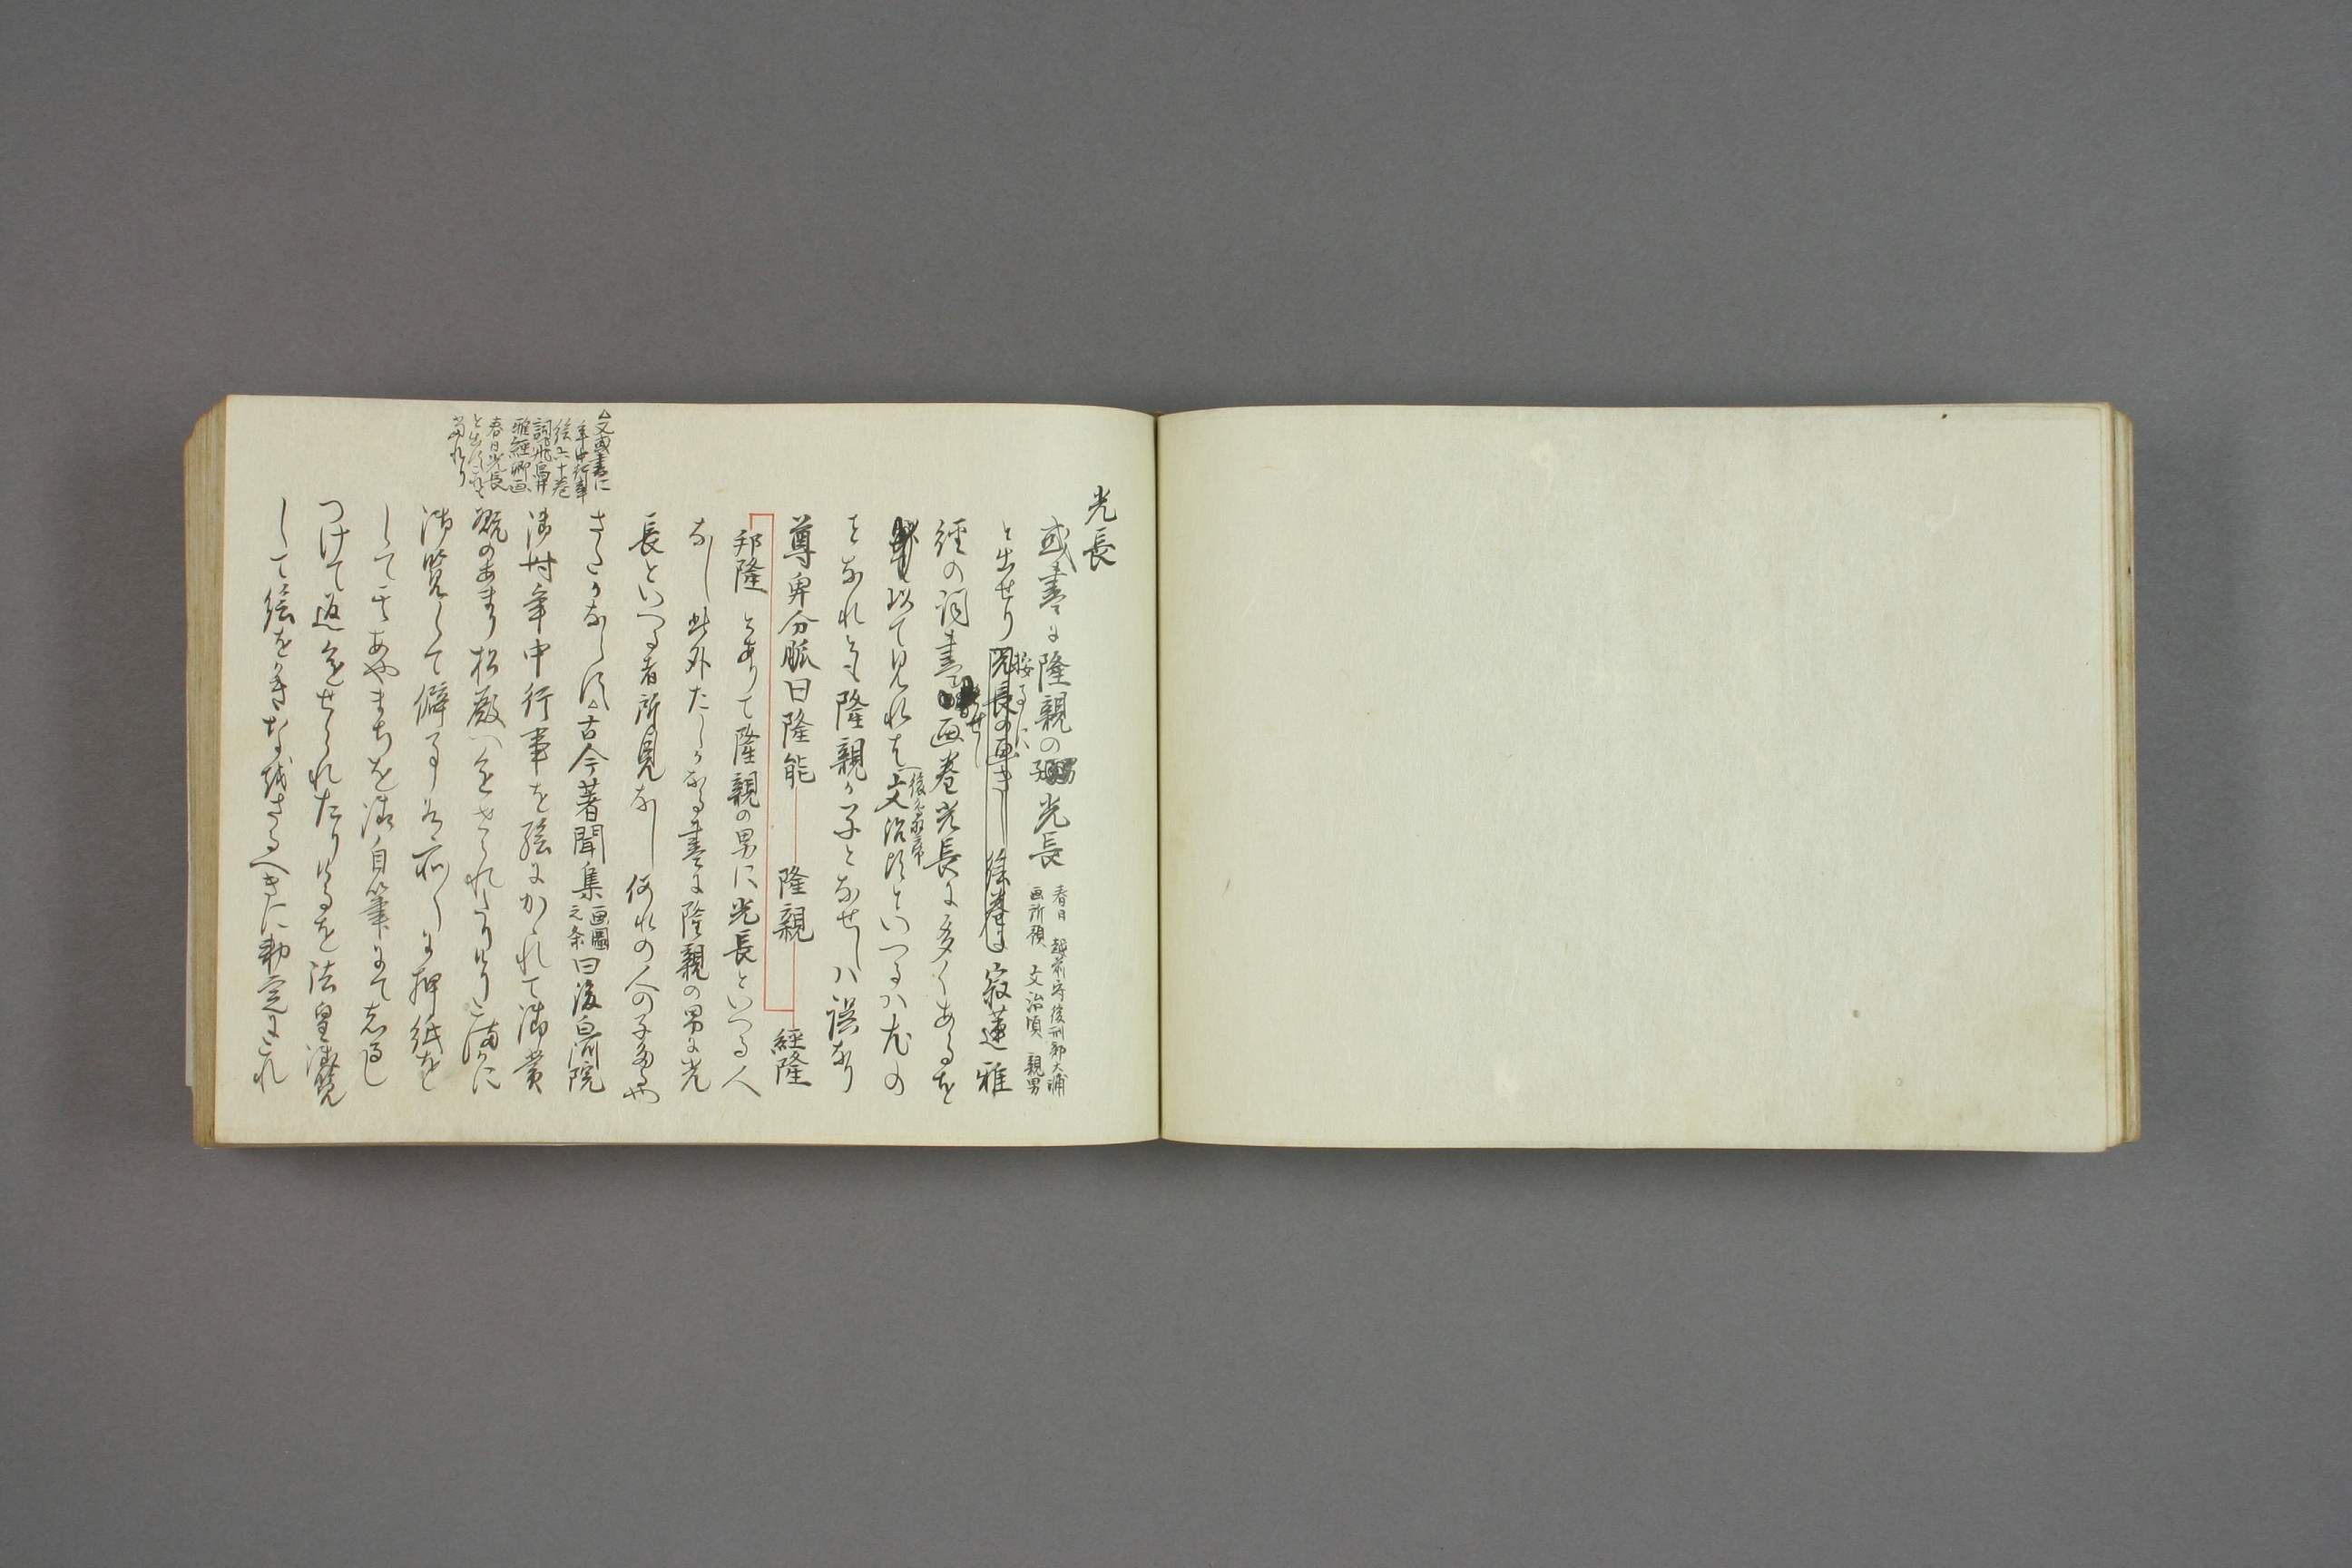 光長
或書に隆親の子光長
春日 越前守後刑部大輔
画所預 文治頃 親男
と出せり
按るに
光長の画きし絵巻は寂蓮雅
経の詞書
せし画巻光長に多くあるを
以て見れは文治頃といつるハ尤の
後鳥羽帝
ことなれとも隆親か子となせしハ誤なり
尊卑分脈曰隆能 隆親 経隆
邦隆とありて隆親の男に光長といつる人
なし此外たしかなる書に隆親の男に光
長といへる者所見なし何れの人の子なるや
さたかならす△古今著聞集
画図
之条
曰後白河院
御時年中行事を絵にかかれて御賞
翫のあまり松殿へ進せられたりけりこまかに
御覧して僻事ある所々に押紙を
して其あやまちを御自筆にてしるし
つけて返進せられたりけるを法皇御覧
して絵をかきなほさるへきに勅定にこれ
△又或書に
年中行事
絵六十巻
詞飛鳥井
雅経卿画
春日光長